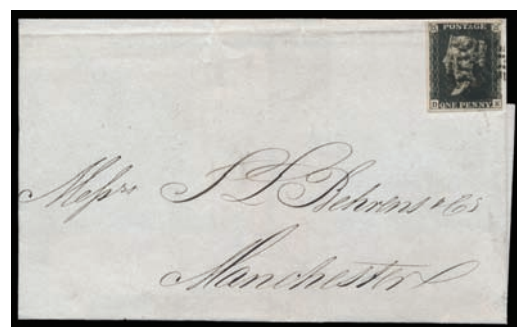 POSTAGE
D ONE PENNY
Messrs S L Behrens & Co
Manchester